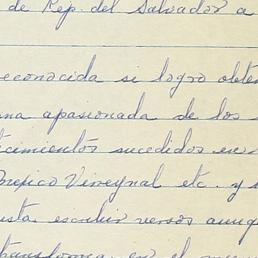 de Rep. del Salvador a
econocida si logro obten
na apasionada de los
cimientos sucedidos en
Virreynal etc. y s
usta escribir versos aunq
transforma en el